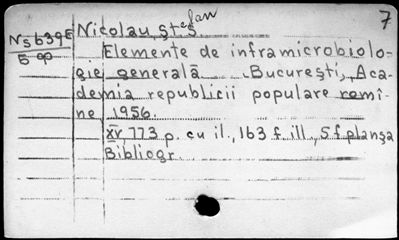 7
Ns639E Nicolau, Ștefan
5 90
Elemente de inframicrobiolo-
gie generală București, Aca-
demia republicii populare romî-
ne 1956.
XV, 773 p. cu il., 163 f. ill., 5 f planșa
Bibliogr.